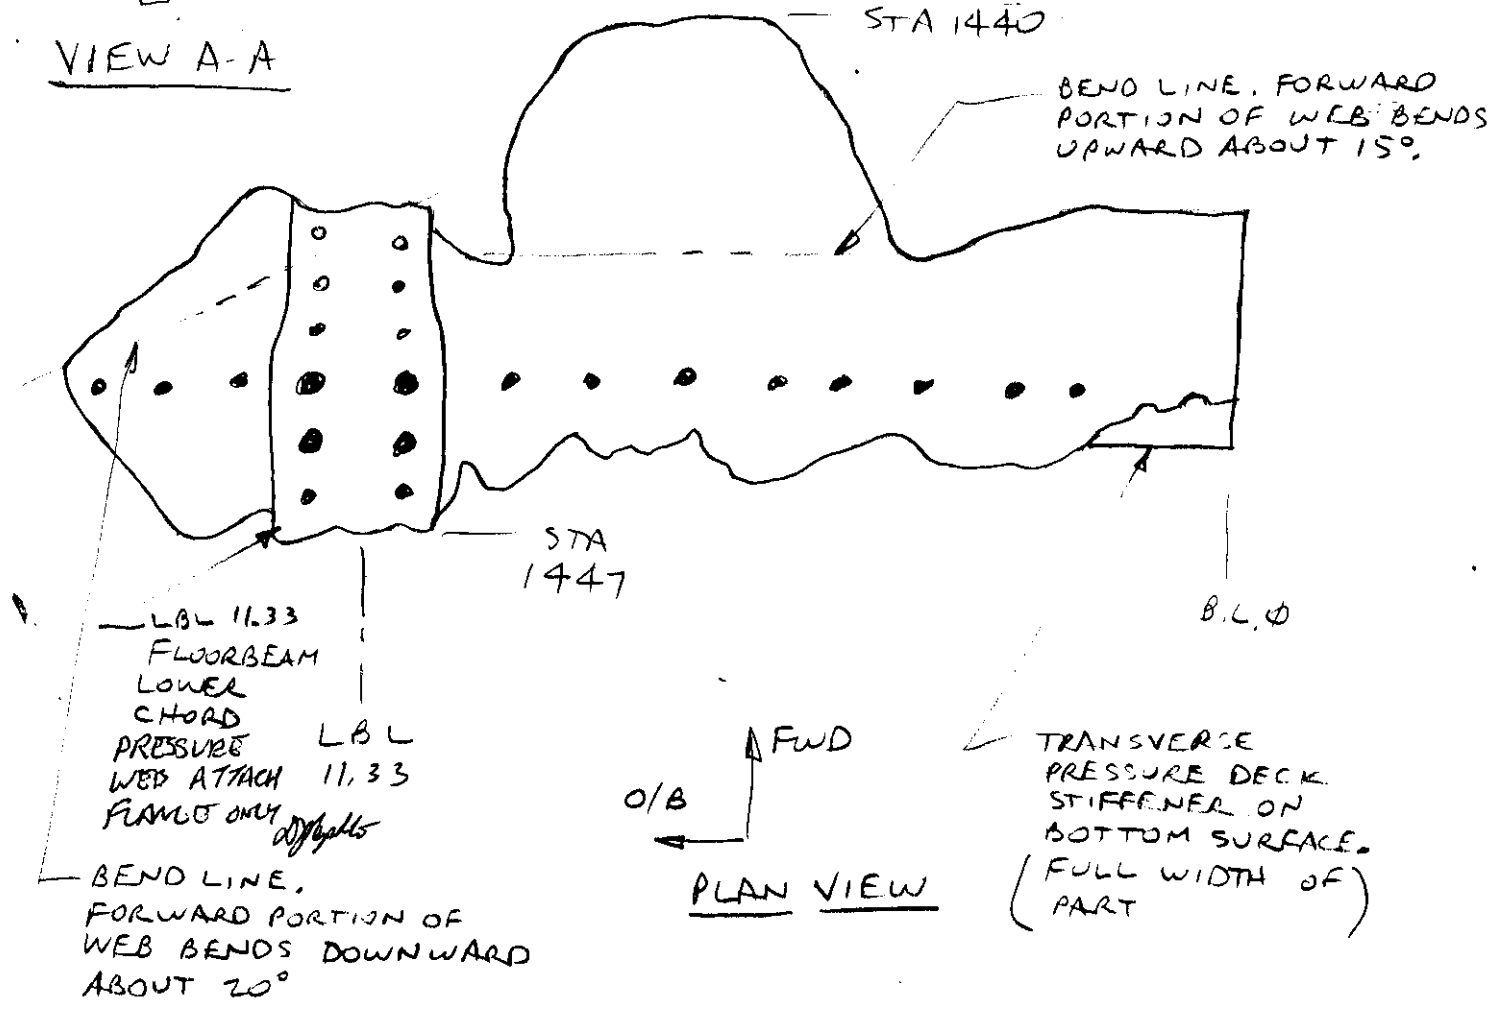 VIEW A-A
STA 1440
BEND LINE. FORWARD
PORTION OF WEB BENDS
UPWARD ABOUT 15°.
STA
1447
B.L. 0
LBL 11.33
FLOORBEAM
LOWER
CHORD
PRESSURE
WEB ATTACH
FLANGE ONLY
LBL
11.33
FWD
O/B
PLAN VIEW
TRANSVERSE
PRESSURE DECK
STIFFENER ON
BOTTOM SURFACE.
(FULL WIDTH OF
PART)
BEND LINE.
FORWARD PORTION OF
WEB BENDS DOWNWARD
ABOUT 20°